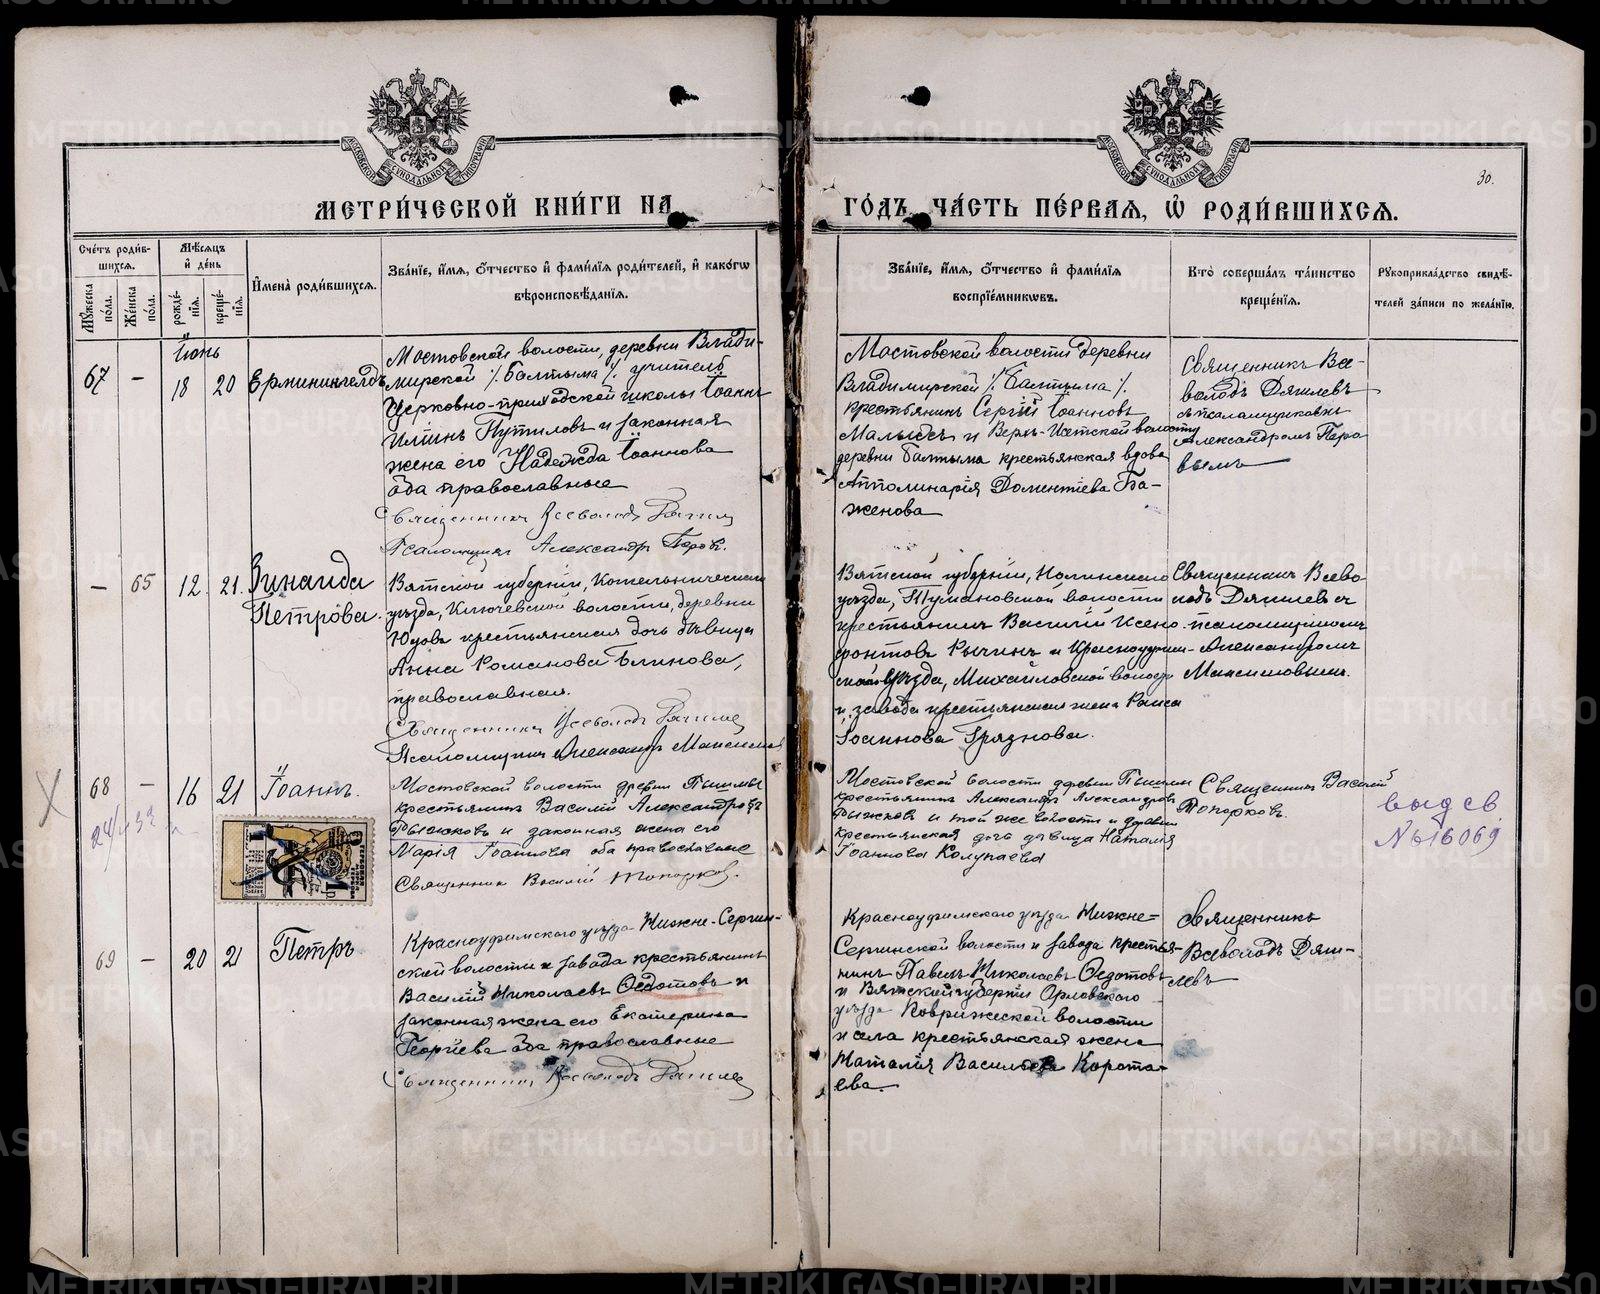 30.
МЕТРИ́ЧЕСКОЙ КНИ́ГИ НА
ГО́ДЪ, ЧА́СТЬ ПЕ́РВАЯ, Ѡ҆ РОДИ́ВШИХСЯ.
Сче́тъ роди́в-
шихся.
Мѣ́сяцъ
и҆ де́нь
И҆мена̀ роди́вшихся.
Зва́нїе, и҆́мя, ѻ҆́тчество и҆ фами́лїя роди́телей, и҆ како́гѡ
вѣроисповѣ́данїя.
Мꙋ́жеска по́ла.
Же́нска по́ла.
рожде́нїя.
креще́нїя.
Зва́нїе, и҆́мя, ѻ҆́тчество и҆ фами́лїя
воспрїе́мниковъ.
Кто̀ соверша́лъ та́инство
креще́нїя.
Рꙋкоприкла́дство свидѣ́-
телей за́писи по жела́нїю.
Іюнь
67 - 18 20 Ерминингельдъ
Мостовской волости, деревни Влади-
мирской /. Балтыма /. учитель
Церковно-приходской школы Іоаннъ
Ильинъ Путиловъ и законная
жена его Надежда Іоаннова
оба православные
Священникъ Всеволодъ
Псаломщикъ Александръ Перов.
Мостовской волости деревни
Владимирской /. Балтыма /.
крестьянинъ Сергій Іоанновъ
Малышевъ и Верхъ-Исетской волости
деревни Балтыма крестьянская вдова
Апполинарія Доментіева Ба-
женова
Священникъ Все-
володъ Дягилевъ
съ псаломщикомъ
Александромъ Перо
вымъ
- 65 12. 21. Зинаида
Петрова.
Вятской губерніи, Котельническаго
уѣзда, Ключевской волости, деревни
крестьянская дочь дѣвица
Анна Романова Блинова,
православная.
Священникъ Всеволодъ
Псаломщикъ Александръ Максимов
Вятской губерніи, Нолинскаго
уѣзда, Тумановской волости
крестьянинъ Василій Ксено
фонтовъ и Красноуфим-
скаго уѣзда, Михайловской волости
и завода крестьянская жена Раиса
Іоаннова Грязнова.
Священникъ Всево
лодъ Дягилевъ съ
псаломщикомъ
Александромъ
Максимовым.
68 - 16 21 Іоаннъ.
Мостовской волости деревни Пышмы
крестьянинъ Василій Александровъ
Рыжковъ и законная жена его
Марія Іоаннова оба православные
Священник Василій Топорков.
Мостовской волости деревни Пышмы
крестьянинъ Александръ Александровъ
Рыжковъ и той же волости и деревни
крестьянская дочь дѣвица Наталія
Іоаннова Колупаева
Священникъ Василій
Топорковъ.
выд св
№ 16069
69 - 20 21 Петръ
Красноуфимского уѣзда Нижне-Сергин-
ской волости и завода крестьянинъ
Василій Николаевъ Ѳедотовъ и
законная жена его Екатерина
Георгіева оба православные
Священникъ Всеволодъ
Красноуфимского уѣзда Нижне-
Сергинской волости и завода крестья-
нинъ Павелъ Николаевъ Ѳедотовъ
и Вятской губерніи Орловского
уѣзда Коврижской волости
и села крестьянская жена
Наталія Васильева Корота-
ева.
Священникъ
Всеволодъ Дяги-
левъ